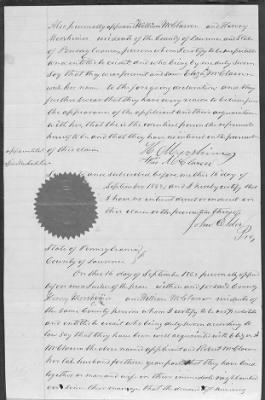 Also personally appeared William McClaren and Harvey
Mershimer residents of the County of Lawrence and State
of Pennsylvania, persons whom I certify to be respectable
and entitled to credit and who being by me duly sworn
say that they were present and saw Eliza McClaren
sign her name to the foregoing declaration and they
further swear that they have every reason to believe from
the appearance of the applicant and their acquaintance
with her, that she is the identical person she represents
herself to be and that they have no interest in the prosecution
of this claim
H. Mershimer
Wm McClaren
Sworn to and subscribed before me this 16 day of
September 1862, and I hereby certify that
I have no interest direct or indirect in
this claim or the prosecution thereof
John
Pro
State of Pennsylvania
County of Lawrence
On this 16 day of September 1862 personally appeared
before me of the within and for said County
Harvey Mershimer and William McClaren residents of
the same County persons whom I certify to be respectable
and entitled to credit who being duly sworn according to
law say that they have been well acquainted with Eliza
McClaren the above named applicant and Robert McClaren
her late husband for three years past that they have lived
together as man and wife in their immediate neighborhood